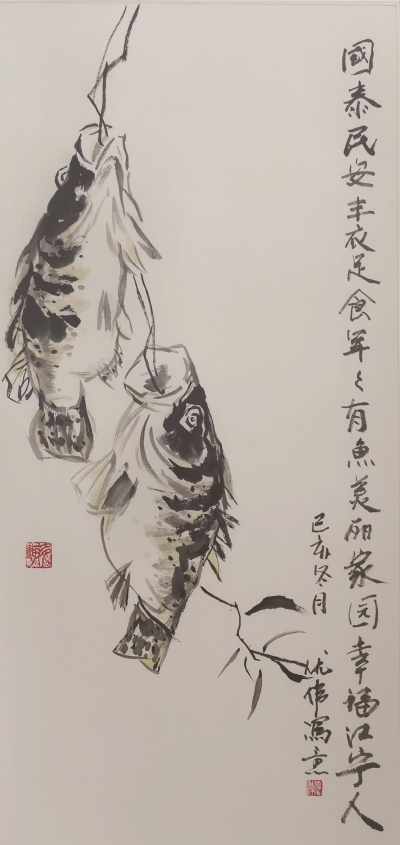 國泰民安丰衣足食年〻有魚美丽家园幸福江宁人
己亥冬月
伟寫意